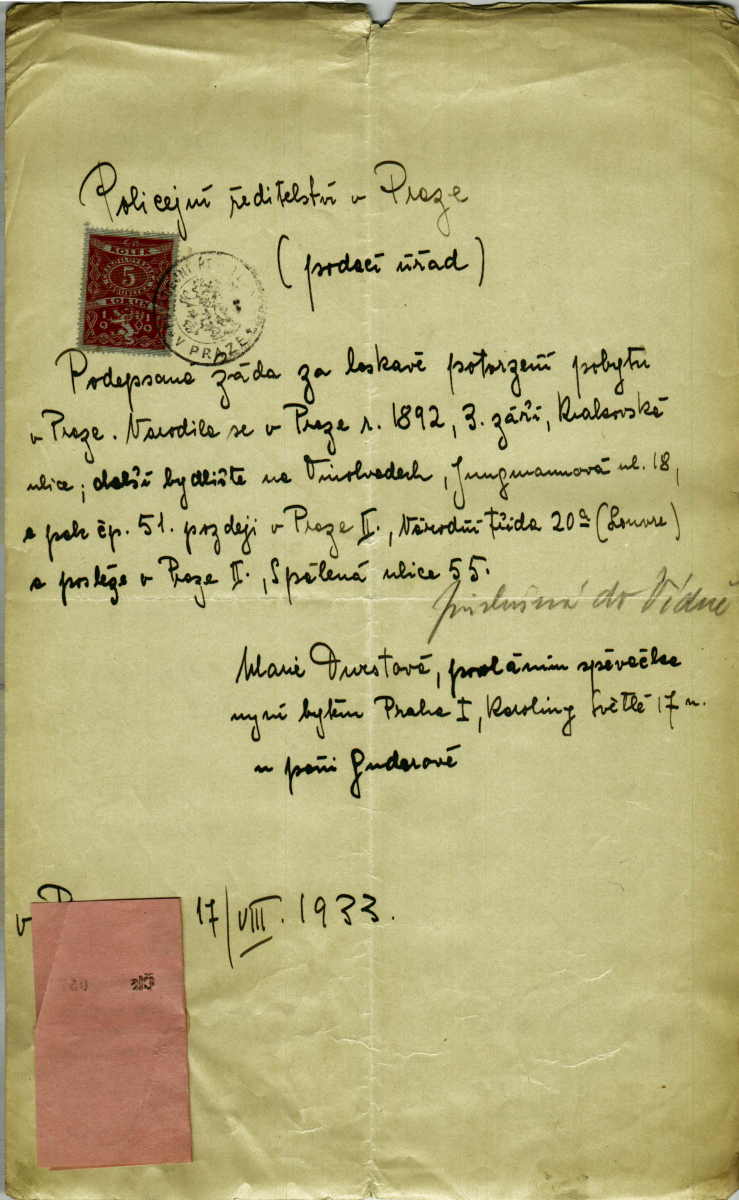 Policejní ředitelství v Praze
(podací úřad)
KOLEK
5
KORUN
1919
V PRAZE
Podepsaná žádá za laskavé potvrzení pobytu
v Praze. Narodila se v Praze r. 1892, 3. září, Krakovská
ulice; další bydliště na Vinohradech, Jungmannová ul. 18,
a pak čp. 51. pozdeji v Praze II., Národní třída 20a (Louvre)
a posléze v Praze II., Spálená ulice 55.
příslušná do Vídně
Marie Durstová, povoláním spěvačka
nyní bytem Praha I, Karoliny Světlé 17 n.
u paní Gudarové
v 17/VIII. 1933.